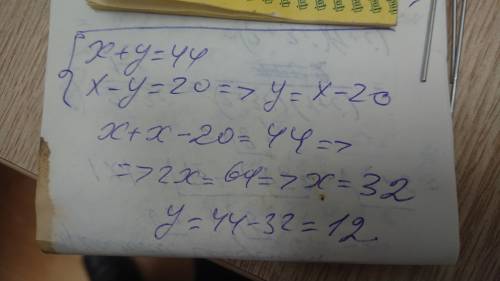 x+y=44
x-y=20=> y=x-20
x+x-20=44=>
=>2x=64=>x=32
y=44-32=12